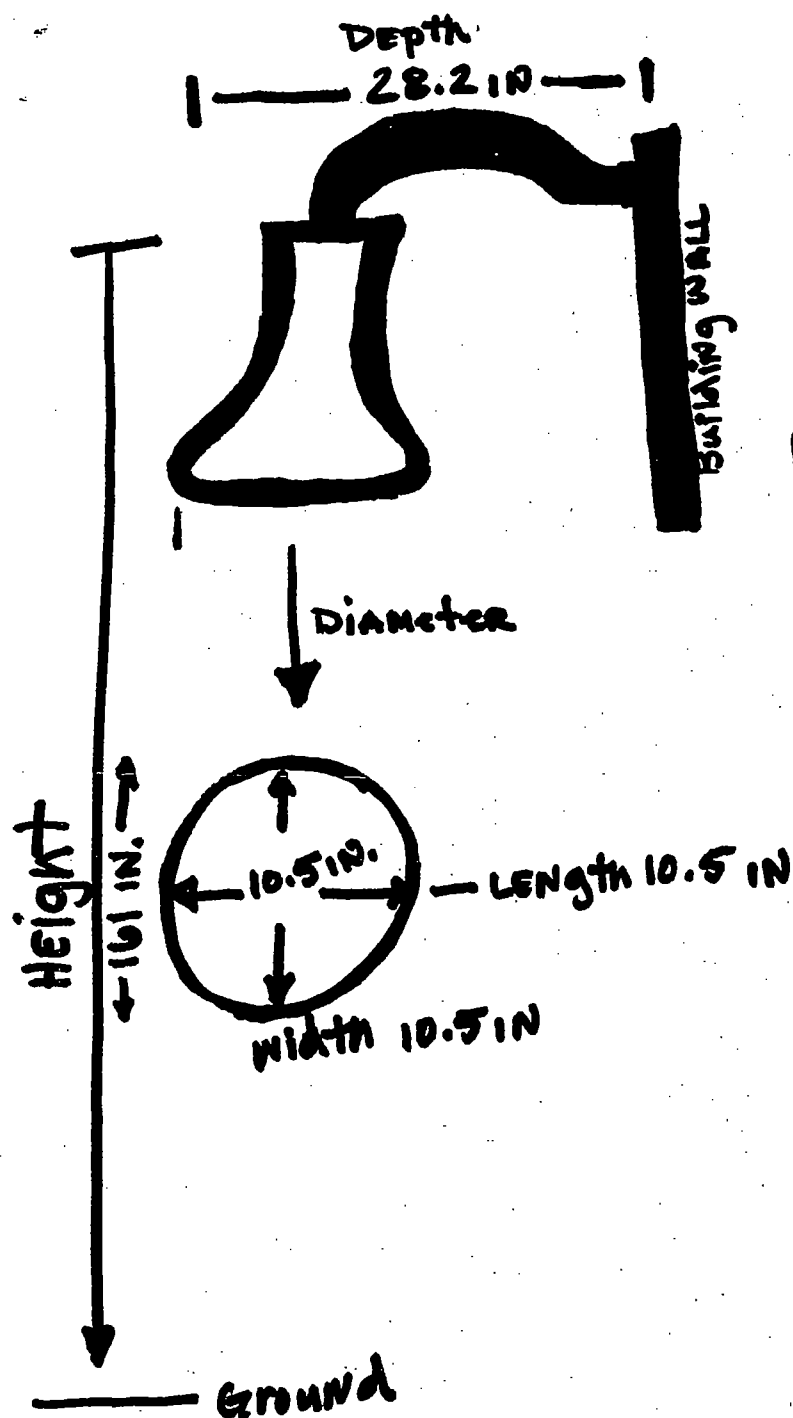 Depth
28.2 IN
Building WALL
DiAMeteR
Height
161 IN.
10.5 IN.
LENgth 10.5 IN
width 10.5 IN
Ground